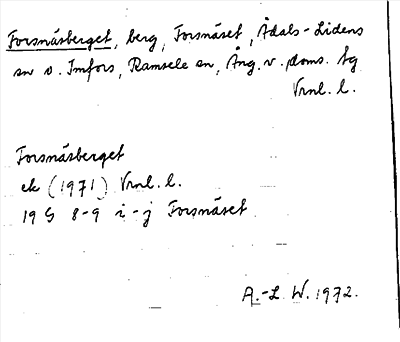 Forsnäsberget, berg, Forsnäset, Ådals-Lidens
sn o. Imfors, Ramsele sn, Ång. v. doms. tg
Vrnl. l.
Forsnäsberget
ek (1971) Vrnl. l.
19 G 8-9 i-j Forsnäset
A.-L. W. 1972.